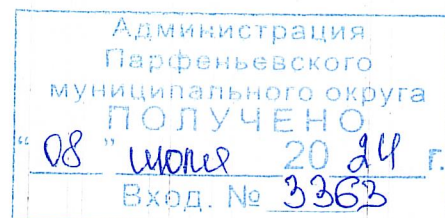 Администрация
Парфеньевского
муниципального округа
ПОЛУЧЕНО
"08" июля 2024 г.
Вход. № 3363